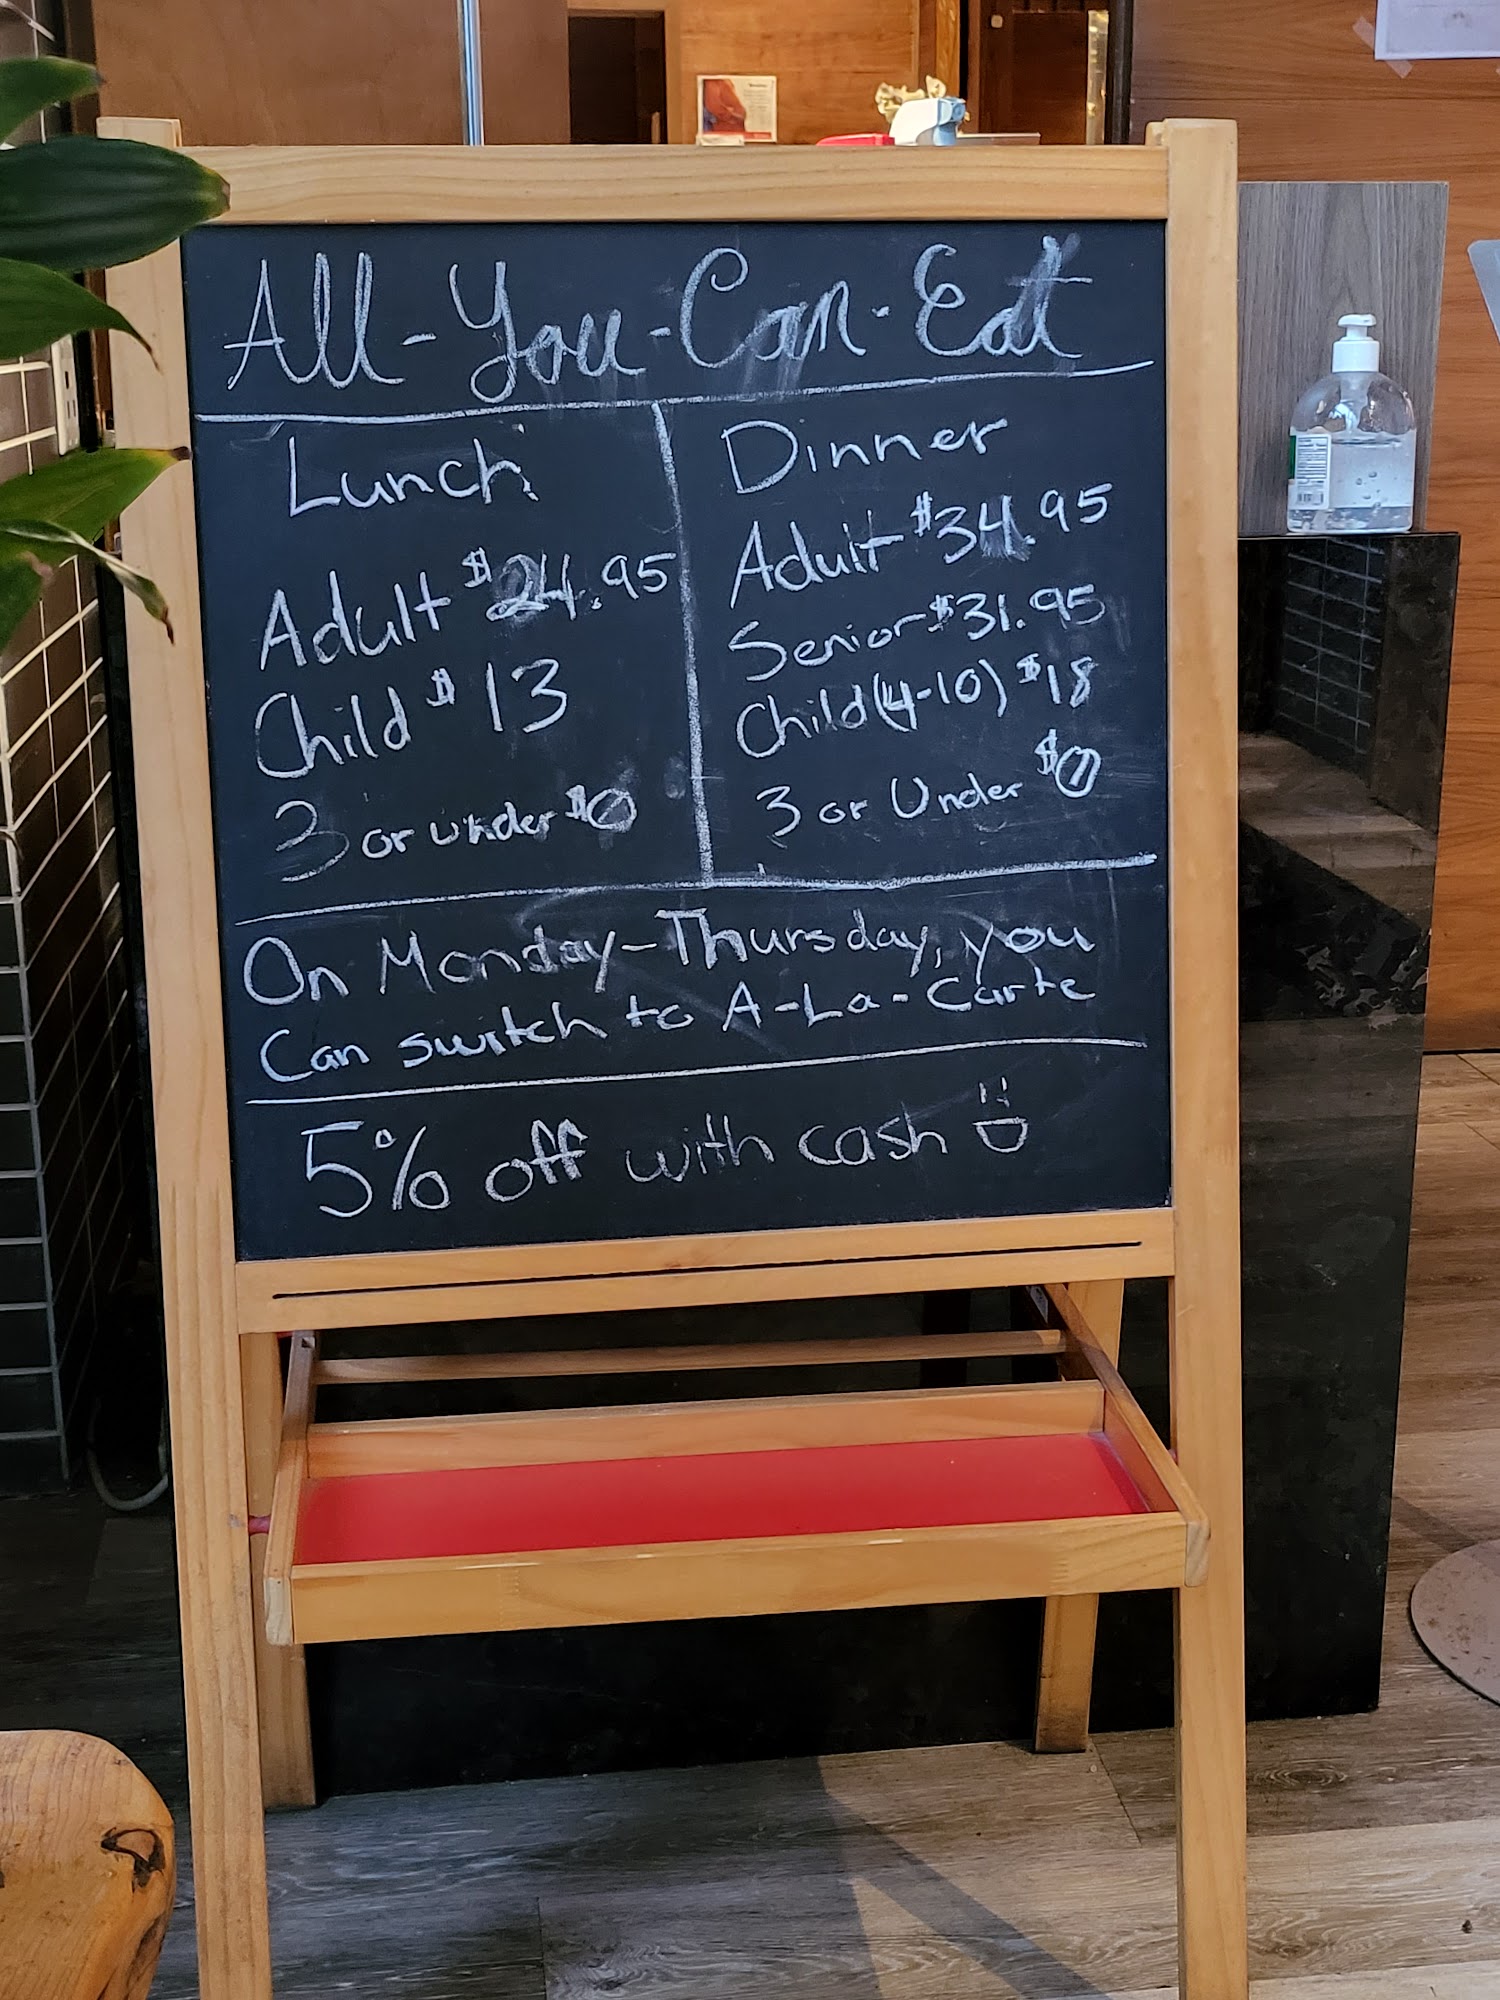 All-You-Can-Eat
Lunch
Adult $24.95
Child $13
3 or under $0
Dinner
Adult $34.95
Senior $31.95
Child (4-10) $18
3 or Under $0
On Monday-Thursday, you
Can switch to A-La-Carte
5% off with cash